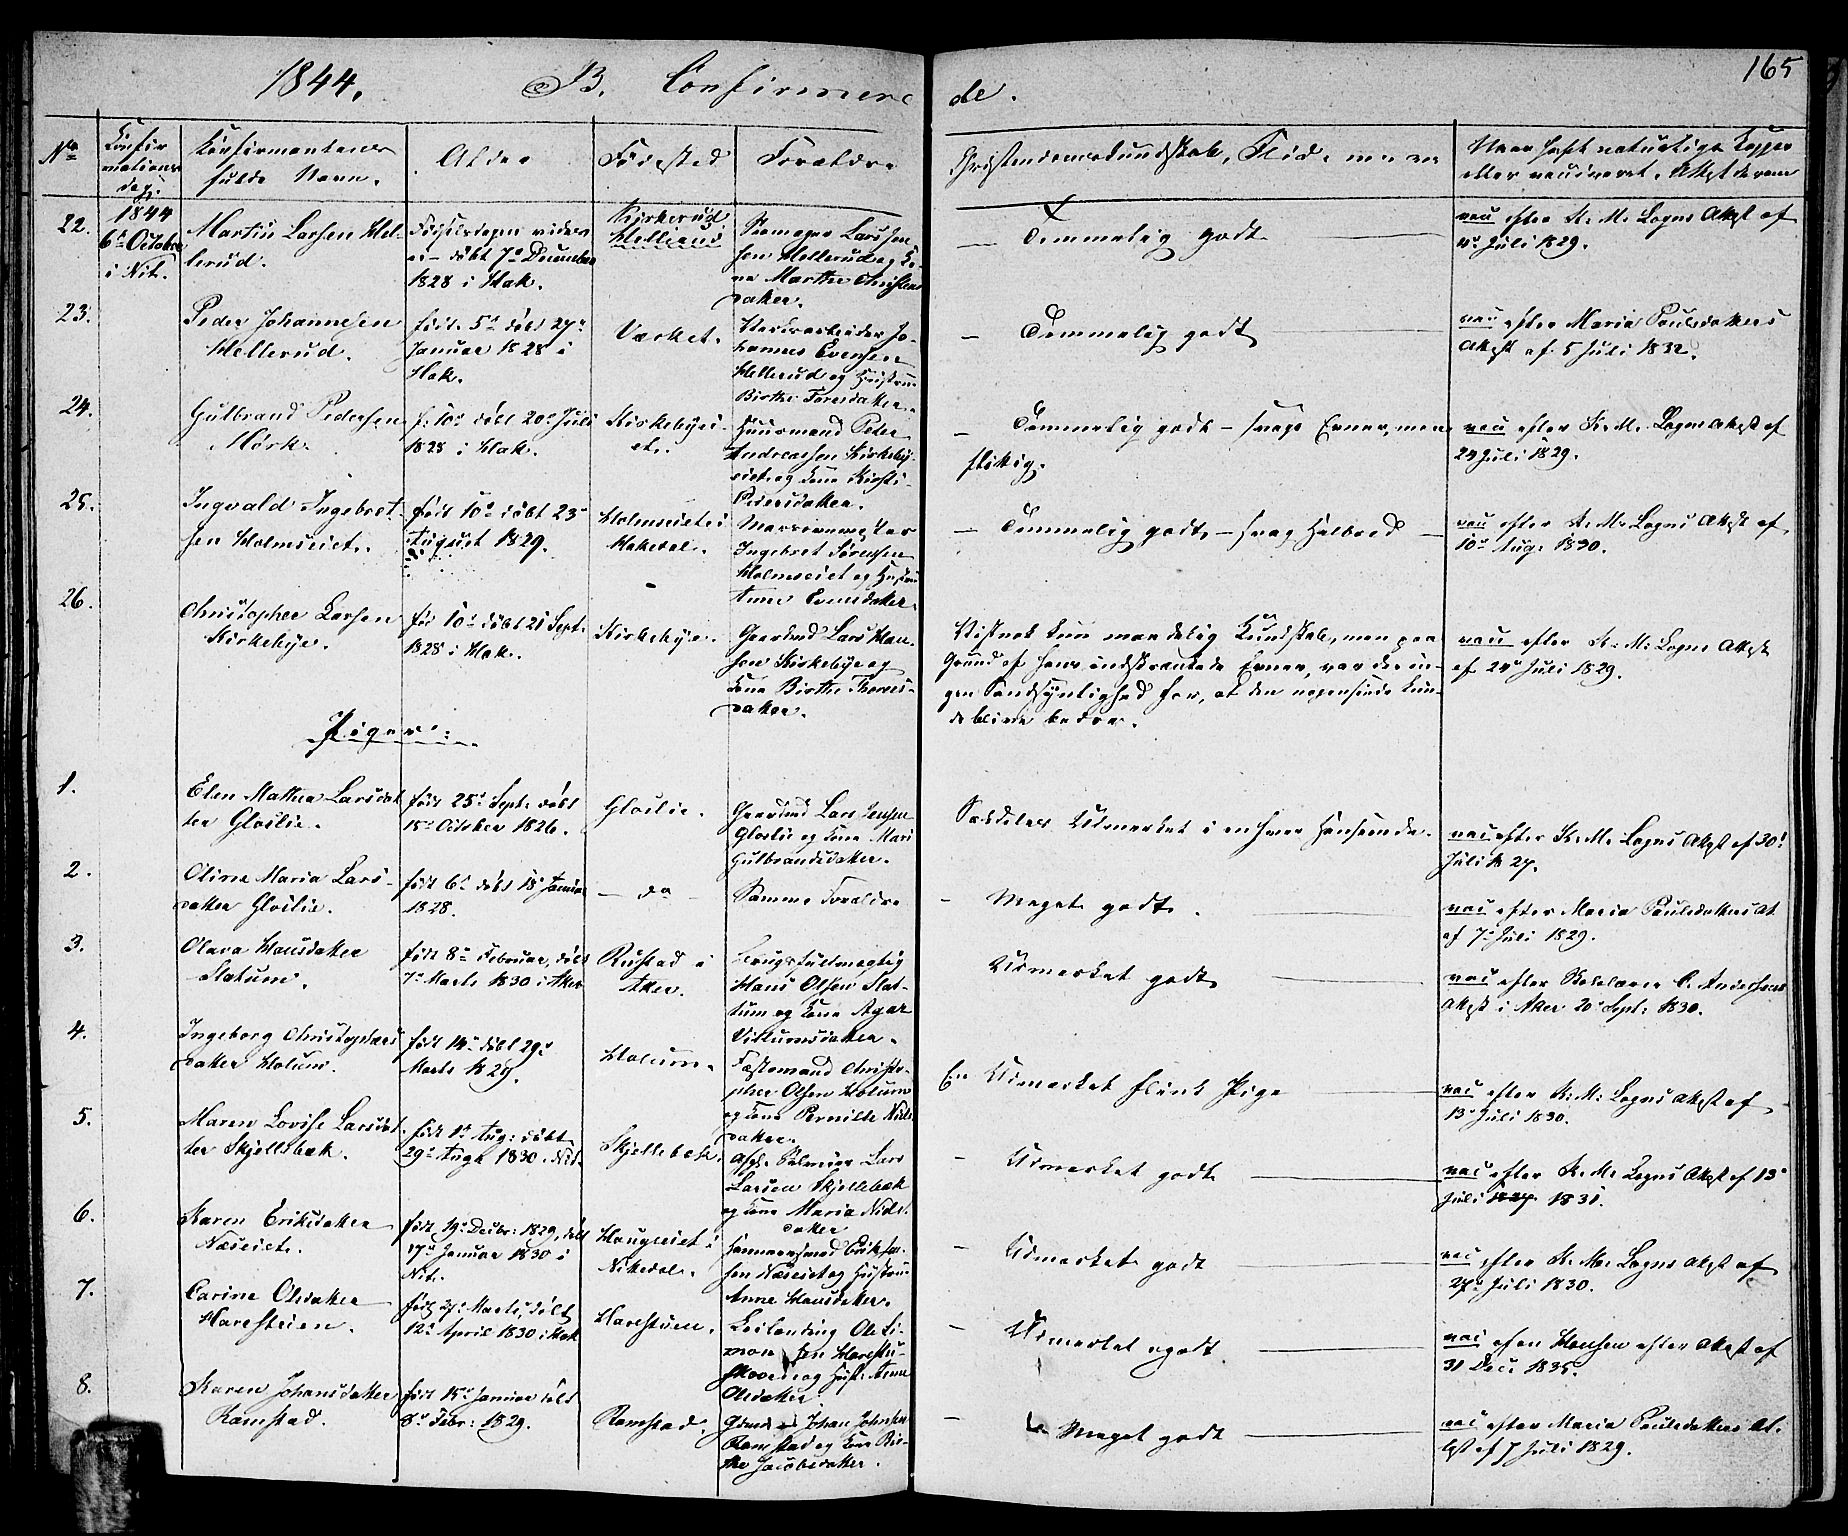 1844. B. Confirmerede. 165
No
Confirmations dag.
Confirmantens fulde Navn.
Alder
Fødested
Forældre
Christendomskundskab, Flid
Naar havt naturlige Kopper eller vaccineret. Attest derom
22.
1844
6te October
i Nit.
Martin Larsen Hellerud.
døbt 7de December
1828 i Hak.
Kirkerud
Hellerud
Lars
sen Hellerud og Kone Marthe Christens
datter.
Temmelig godt
vac efter K. M. Logns Attest af
Juli 1829.
23.
Peder Johannesen
Hellerud.
født 5te døbt 27de
Januar 1828 i
Hak.
Værket.
Værksarbeider Johannes Evensen
Hellerud og Hustrue
Birthe Toresdatter.
Temmelig godt
vac efter Maria Paulsdatters
Attest af 5 Juli 1832.
24.
Gulbrand Pedersen
Mork.
f. 10de døbt 20de Juli
1828 i Hak.
Kirkebyeiet.
Huusmand Peder
Andreassen Kirkebyeiet og Kone Kirsti
Pedersdatter.
Temmelig godt – svage Evner, men
flittig.
vac efter K. M. Logns Attest af
24 Juli 1829.
25.
Ingvald Ingebretsen Holmseiet.
født 10de døbt 23de
August 1829.
Holmseiet i
Hakedal.
Ingebret Sørensen
Holmseiet og Hustrue
Anne Evensdatter.
Temmelig godt – svag Helbred
vac efter K. M. Logns Attest af
10de Aug. 1830.
26.
Christopher Larsen
Kirkebye.
født 10de døbt 21 Sept.
1828 i Hak.
Kirkebye.
Gaardmd Lars Hansen Kirkebye og
Kone Birthe Thoresdatter.
Vistnok kun maadelig Kundskab, men paa
Grund af hans indskrænkede Evner, var der ingen Sandsynlighed for, at den nogensinde kunde blive bedre.
vac efter K. M. Logns Attest
af 24de Juli 1829.
Piger:
1.
Elen Mathea Larsdatter Gloslie.
født 25de Sept. døbt
15de October 1826.
Gloslie.
Gaardmd Lars Jensen
Gloslie og Kone Mari
Gulbrandsdatter.
Særdeles Udmærket i enhver Henseende.
vac efter K. M. Logns Attest af 30te
Juli 27.
2.
Oline Maria Larsdatter Gloslie.
født 6te døbt 18de Januar
1828.
– do –
Samme Forældre
– Meget godt.
vac efter Maria Paulsdatters At
af 7de Juli 1829.
3.
Olava Hansdatter
Slatum.
født 8de Februar, døbt
7de Marts 1830 i Aker
Rustad i
Aker.
Brugsfuldmægtig
Hans Olsen Slattum og Kone Agar
Udmærket godt
vac efter Skolelærer C. Andersens
Attest i Aker 20de Sept. 1830.
4.
Ingeborg Christophersdatter Holum.
født 14de døbt 29de
Marts 1829.
Holum.
Fæstemand Christopher Olsen Holum
og Kone Pernille Nielsdatter.
En Udmærket flink Pige
vac efter K. M. Logns Attest af
13de Juli 1830.
5.
Maren Lovise Larsdatter Skjellebæk.
født 1te Aug. døbt
29de Aug. 1830. Nit.
Skjellebæk.
Lars
Larsen Skjellebæk
og Kone Maria Nielsdatter
– Udmærket godt
vac efter K. M. Logns Attest af 13de
Juli 1831.
6.
Karen Eriksdatter
Næseiet.
født 19de Decbr. 1829, døbt
17de Januar 1830 i
Nit.
Haugseiet i
Nitedal.
Hammersmed Erik
sen Næseiet og Hustrue
Anne Hansdatter.
– Udmærket godt
vac efter K. M. Logns Attest af
27de Juli 1830.
7.
Carine Olsdatter
Harestuen.
født Marts, døbt
12te April 1830 i Hak
Harestuen.
Leilænding Ole Simonsen Harestuskoven og Hust. Anne
Olsdatter
– Udmærket godt
vac Hansen efter Attest af
31 Dec. 1835.
8.
Karen Johansdatter
Ramstad.
født 15de Januar døbt
8de Febr. 1829.
Ramstad.
Johan Johnsen
Ramstad og Kone Birthe Jacobsdatter.
– Meget godt
vac efter Maria Paulsdatters Attest af 7 Juli 1829.